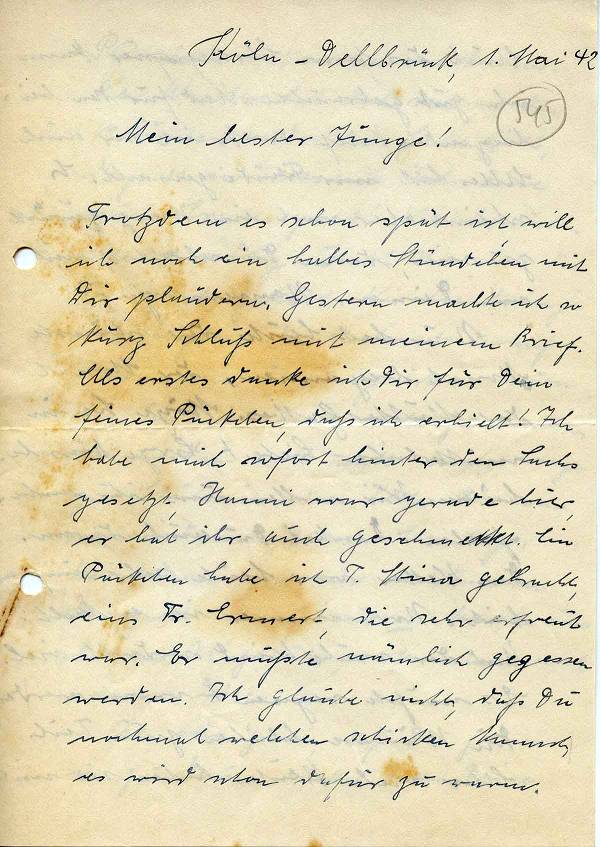 Köln-Dellbrück, 1. Mai 42
545
Mein bester Junge!
Trotzdem es schon spät ist, will
ich noch ein halbes Stündchen mit
Dir plaudern. Gestern machte ich so
kurz Schluß mit meinem Brief.
Als erstes danke ich Dir für Dein
feines Päckchen, daß ich erhielt! Ich
habe mich sofort hinter den Lachs
gesetzt, Hanni war gerade hier,
er hat ihr auch geschmeckt. Ein
Päckchen habe ich T. Stina gebracht,
eins Fr. Ermert, die sehr erfreut
war. Er mußte nämlich gegessen
werden. Ich glaube nicht, daß Du
nochmal welchen schicken kannst,
es wird schon dafür zu warm.